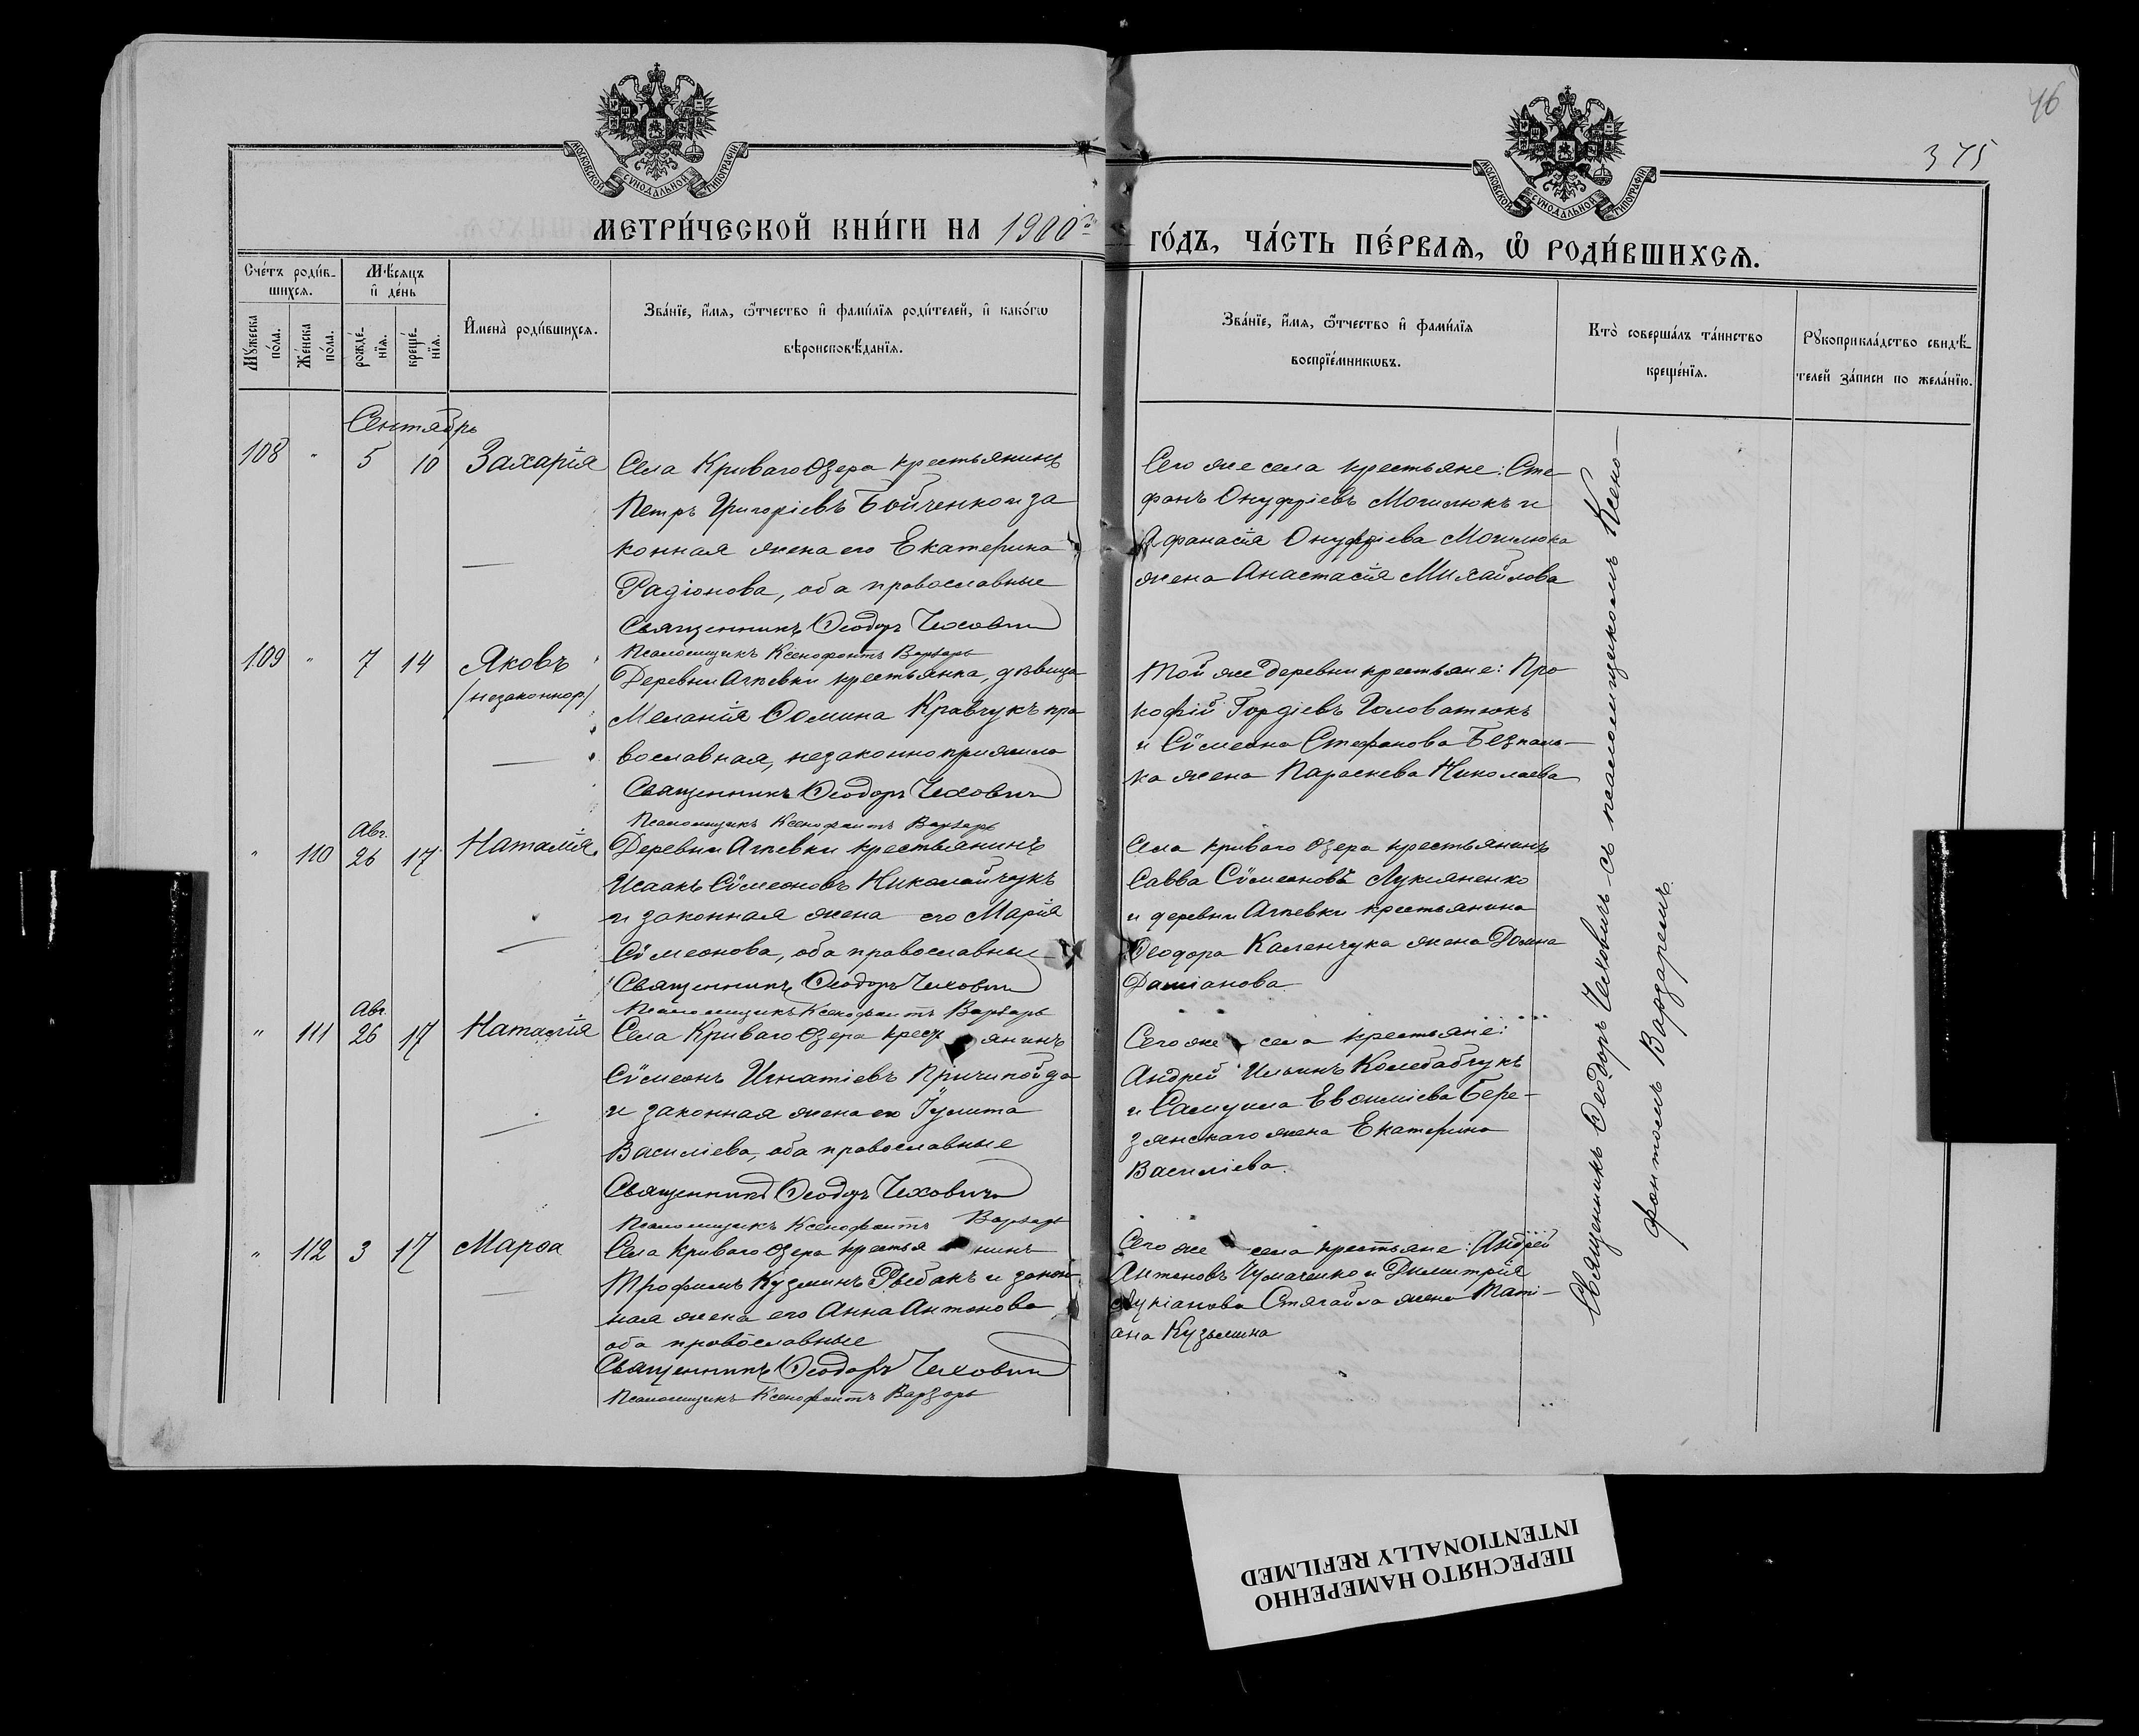 46
375
МОСКОВСКОЙ СѴНОДАЛЬНОЙ ТИПОГРАФІИ
МОСКОВСКОЙ СѴНОДАЛЬНОЙ ТИПОГРАФІИ
МЕТРИ́ЧЕСКОЙ КНИ́ГИ НА 1900й
ГО́ДЪ, ЧА́СТЬ ПЕ́РВАѦ, Ѡ҆ РОДИ́ВШИХСѦ.
Сче́тъ роди́в-
шихсѧ.
Мꙋ́жеска по́ла.
Же́нска по́ла.
Мѣ́сѧцъ
и҆ де́нь
рожде́-
нїѧ.
креще́-
нїѧ.
И҆мена̀ роди́вшихсѧ.
Зва́нїе, и҆́мѧ, ѻ҆́тчество и҆ фами́лїѧ роди́телей, и҆ како́гѡ
вѣроисповѣ́данїѧ.
Зва́нїе, и҆́мѧ, ѻ҆́тчество и҆ фами́лїѧ
воспрїе́мникѡвъ.
Кто̀ соверша́лъ та́инство
креще́нїѧ.
Рꙋкоприкла́дство свидѣ́-
телей за́писи по жела́нїю.
Сентябрь
108 " 5 10 Захарія
Села Криваго Озера крестьянинъ
Петръ Григоріевъ Бойченко и за
конная жена его Екатерина
Радіонова, оба православные
Священникъ Ѳеодоръ Чеховичъ
Псаломщикъ Ксенофонтъ Варзарь
Сего же села крестьяне: Сте-
фанъ Онуфріевъ Могилюкъ и
Афанасія Онуфріева Могилюка
жена Анастасія Михайлова
109 " 7 14 Яковъ
/незаконнор./
Деревни Агѣевки крестьянка, дѣвица
Меланія Ѳомина Кравчукъ пра
вославная, незаконно прижила
Священникъ Ѳеодоръ Чеховичъ
Псаломщикъ Ксенофонтъ Варзарь
Той же деревни крестьяне: Про
кофій Гордіевъ Головатюкъ
и Сѵмеона Стефанова Безпаль-
ка жена Параскева Николаева
Авг.
" 110 26 17 Наталія
Деревни Агѣевки крестьянинъ
Исаакъ Сѵмеоновъ Николайчукъ
и законная жена его Марія
Сѵмеонова, оба православные
Священникъ Ѳеодоръ Чеховичъ
Псаломщикъ Ксенофонтъ Варзарь
Села Криваго Озера крестьянинъ
Савва Сѵмеоновъ Лукьяненко
и деревни Агѣевки крестьянина
Ѳеодора Каленчука жена Домна
Даміанова
Авг.
" 111 26 17 Наталія
Села Криваго Озера крестьянинъ
Сѵмеонъ Игнатіевъ Причипойда
и законная жена его Іулита
Василіева, оба православные
Священникъ Ѳеодоръ Чеховичъ
Псаломщикъ Ксенофонтъ Варзарь
Сего же села крестьяне:
Андрей Ильинъ Колебабчукъ
и Самуила Евѳиміева Бере-
зянскаго жена Екатерина
Василіева.
" 112 3 17 Марѳа
Села Криваго Озера крестьянинъ
Трофимъ Кузминъ Рыбакъ и закон
ная жена его Анна Антонова
оба православные
Священникъ Ѳеодоръ Чеховичъ
Псаломщикъ Ксенофонтъ Варзарь
Сего же села крестьяне: Андрей
Антоновъ Чумаченко и Димитрія
Лукіанова жена Таті-
ана Кузьмина
Священникъ Ѳеодоръ Чеховичъ съ псаломщикомъ Ксено-
фонтомъ Варзаремъ.
ПЕРЕСНЯТО НАМЕРЕННО
INTENTIONALLY REFILMED